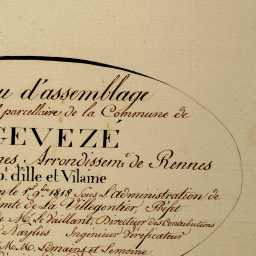 u d'assemblage
parcellaire de la Commune de
GEVEZÉ
nes Arrondissem.t de Rennes
d'ille et Vilaine
le 1.er 9.bre 1818 Sous L'administration de
mte de La Villegontier, Préfet
M. Le Vaillant, Directeur des Contributions
Naylies Ingénieur Vérificateur
M.M. Lemains et Lemoine